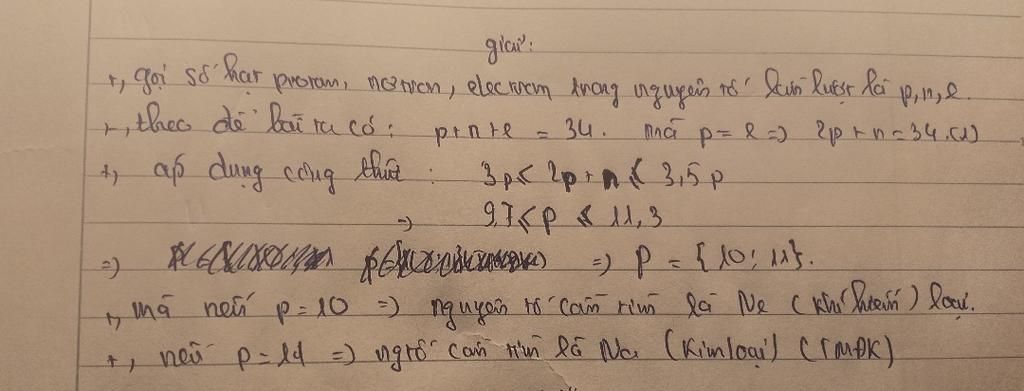 giải:
+, gọi số hạt proton, nơtron, electron trong nguyên tố lần lượt là p,n,e.
+, theo đề bài ra có: p+n+e = 34. mà p=e => 2p+n=34.(1)
+, áp dụng công thức: 3p ≤ 2p+n ≤ 3,5p
=> 9,7 ≤ p ≤ 11,3
=> => p = {10; 11}.
+, mà nếu p=10 => nguyên tố cần tìm là Ne (khí hiếm) loại.
+, nếu p=11 => ngtố cần tìm là Na (Kim loại) (TMĐK)